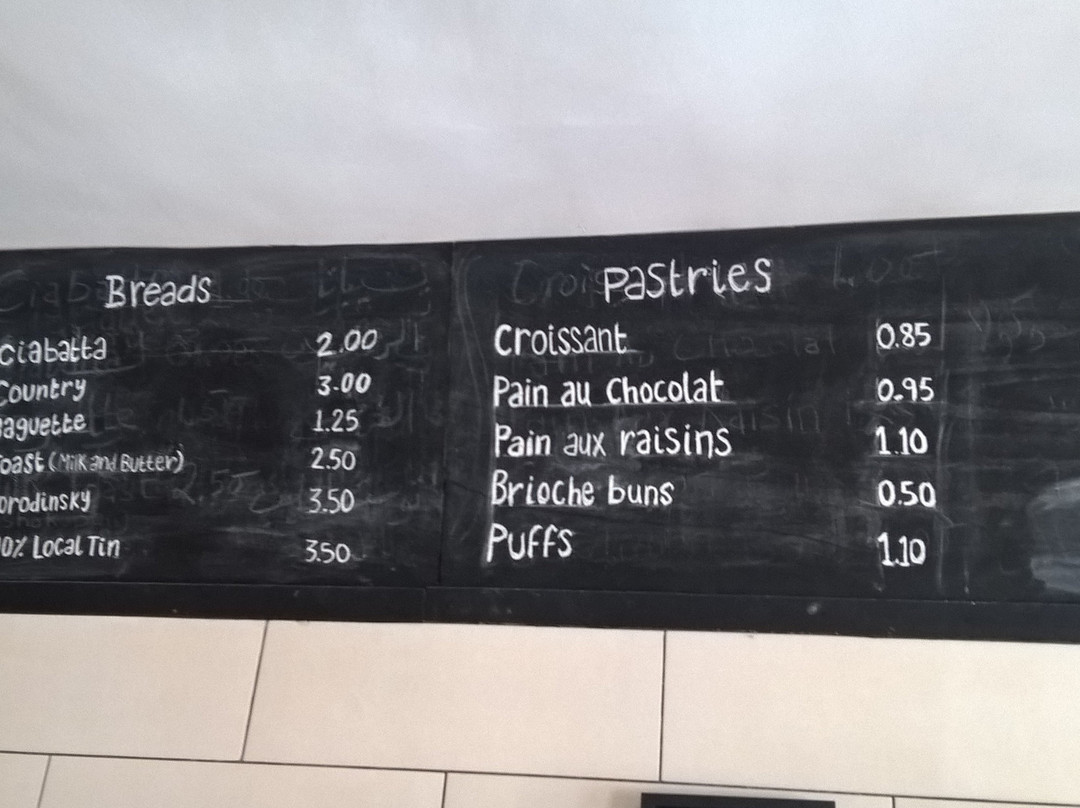 Breads
Ciabatta 2.00
Country 3.00
aguette 1.25
oast (Milk and Butter) 2.50
orodinsky 3.50
0% Local Tin 3.50
Pastries
Croissant 0.85
Pain au Chocolat 0.95
Pain aux raisins 1.10
Brioche buns 0.50
Puffs 1.10